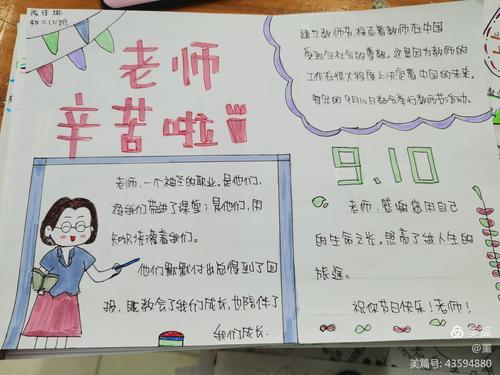 老师
辛苦啦
建立教师节,标志着教师在中国
受到全社会的尊敬。这是因为教师的
工作在很大程度上决定着中国的未来。
每年的9月10日都会举行教师节活动。
9.10
老师,一个神圣的职业。是他们,
将我们带进了课堂;是他们,用
知识浇灌着我们。
他们默默付出总得到了回
报,既教会了我们成长,也陪伴了
我们成长。
老师,感谢您用自己
的生命之光,照亮了我人生的
旅途。
祝你节日快乐!老师!
美篇
@薰
美篇号: 43594880